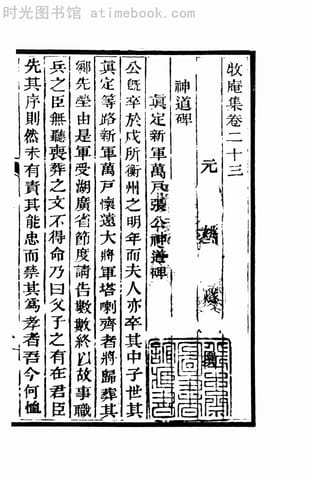 时光图书馆 - atimebook.com
牧庵集卷二十三
元 姚燧
神道碑
真定新軍萬戶張公神道碑
公旣卒於戍所衡州之明年而夫人亦卒其中子世其
真定等路新軍萬戶懷遠大將軍塔喇齊者將歸葬其
鄉先塋由是軍受湖廣省節度請告數數終以故事職
兵之臣無聽喪葬之文不得命乃曰父子之有在君臣
先其序則然未有責其能忠而禁其為孝者吾今何恤